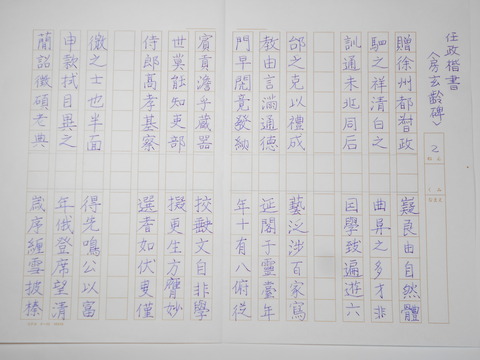 任政楷書
《房玄齡碑》
2
贈徐州都督政
駟之祥清白之
訓通未兆同后
邰之克以禮成
教由言滿通德
門早閒竟發納
嶷良由自然體
曲異之多才非
因學致遍遊六
藝泛涉百家寫
延閣于靈臺年
年十有八俯從
賓貢澹乎藏器
世莫能知吏部
侍郎高孝基察
徽之士也半面
申款拭目異之
簡詔徵碩老典
校讎文自非學
擬更生方膺妙
選者如伏曼僅
得先鳴公以富
年俄登席望清
歲席經雪披榛